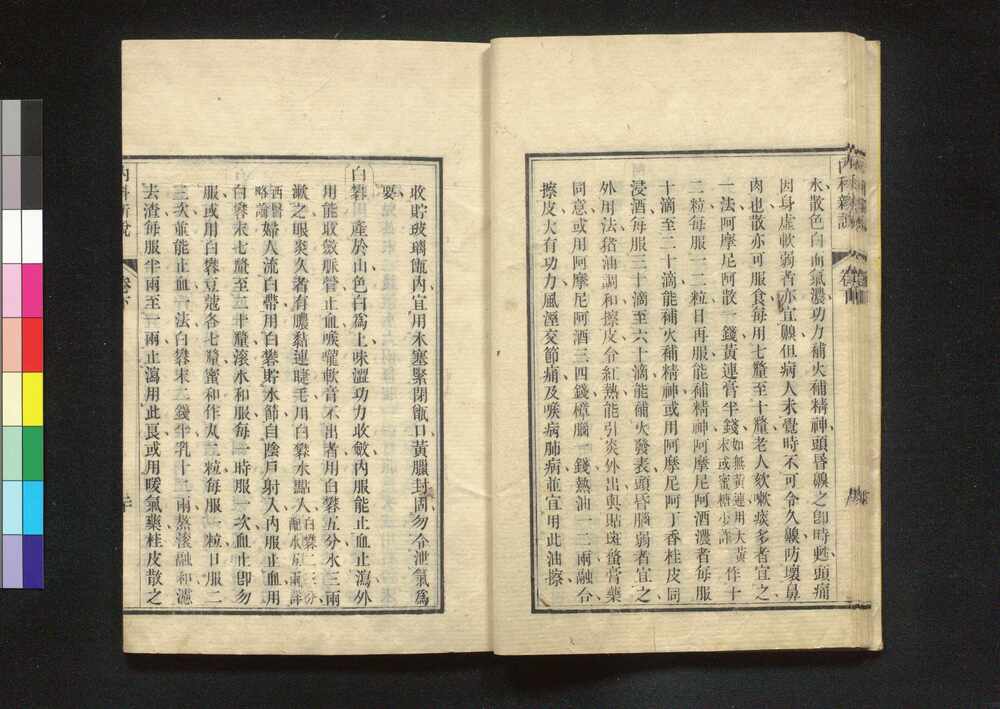 水散色白而氣濃功力補火補精神頭昏嗅之卽時甦頭痛
因身虛軟弱者亦宜嗅但病人未覺時不可令久嗅防壞鼻
肉也散亦可服食每用七釐至十釐老人欬嗽痰多者宜之
一法阿摩尼阿散一錢黃連膏半錢如無黃連用大黃末或蜜糖少許作十
二粒每服一二粒日再服能補精神阿摩尼阿酒濃者每服
十滴至二十滴能補火補精神或用阿摩尼阿丁香桂皮同
浸酒每服三十滴至六十滴能補火發表頭昏腦弱者宜之
外用法猪油調和擦皮令紅熱能引炎外出與貼斑蝥膏藥
同意或用阿摩尼阿酒三四錢樟腦一錢熱油一二兩融合
擦皮大有功力風溼交節痛及喉病肺病並宜用此油擦
收貯玻璃甁內宜用木塞緊閉甁口黃臘封固勿令泄氣爲
要
白礬產於山色白爲上味澀功力收斂內服能止血止瀉外
用能收斂脈管止血喉嚨軟音不出者用白礬五分水三兩
漱之眼炎久者有膿黏連睫毛用白礬水點入白礬二三分融水一兩詳
西醫略論婦人流白帶用白礬貯水節自陰戶射入內服止血用
白礬末七釐至二十釐滾水和服每一時服一次血止卽勿
服或用白礬豆蔻各七釐蜜和作丸三粒每服一粒日服二
三次並能止血一法白礬末二錢牛乳十二兩熬滾融和濾
去渣每服半兩至一兩止瀉用此良或用暖氣藥桂皮散之
內科新說
卷下